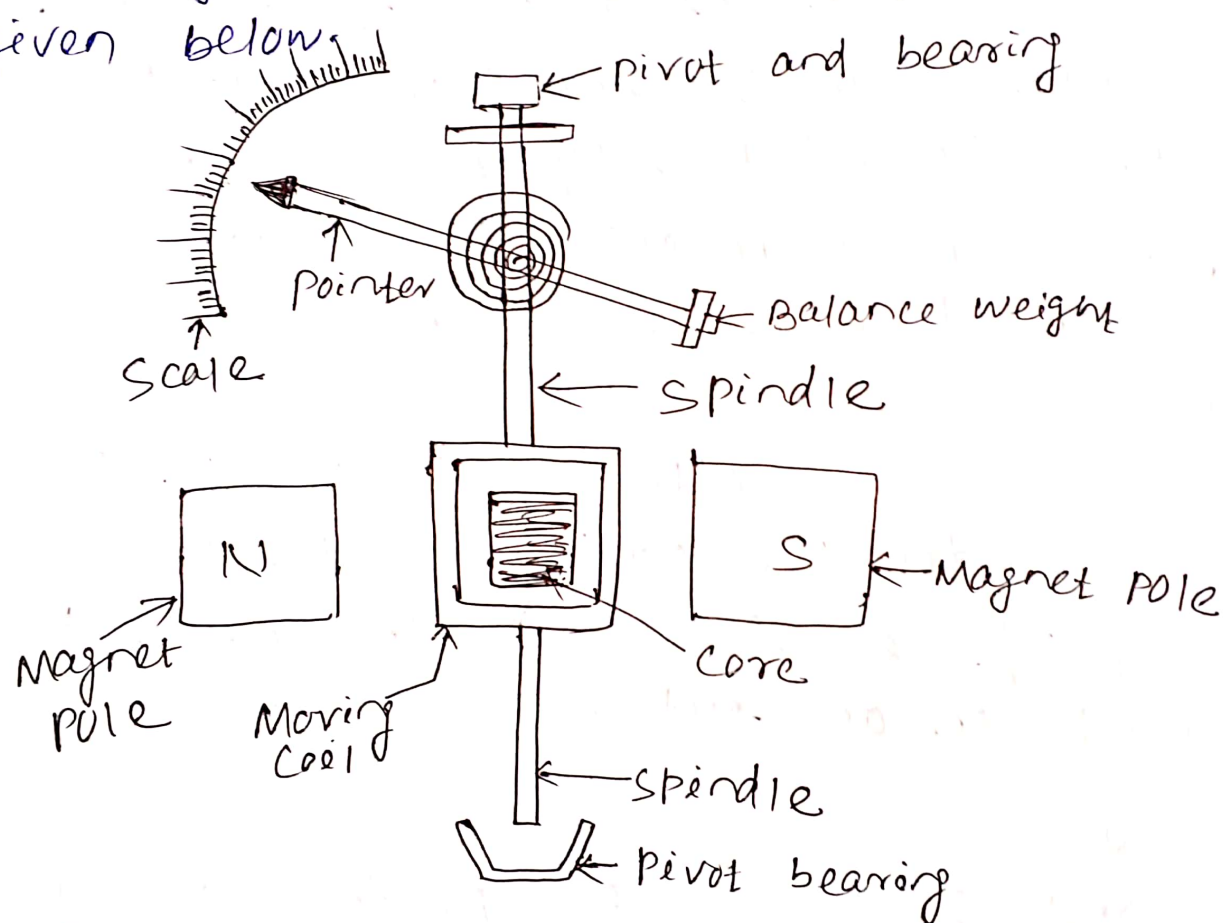 iven below.
pivot and bearing
Pointer
Balance weight
Scale
Spindle
N
S
Magnet pole
Magnet
pole
Moving
coil
core
Spindle
Pivot bearing